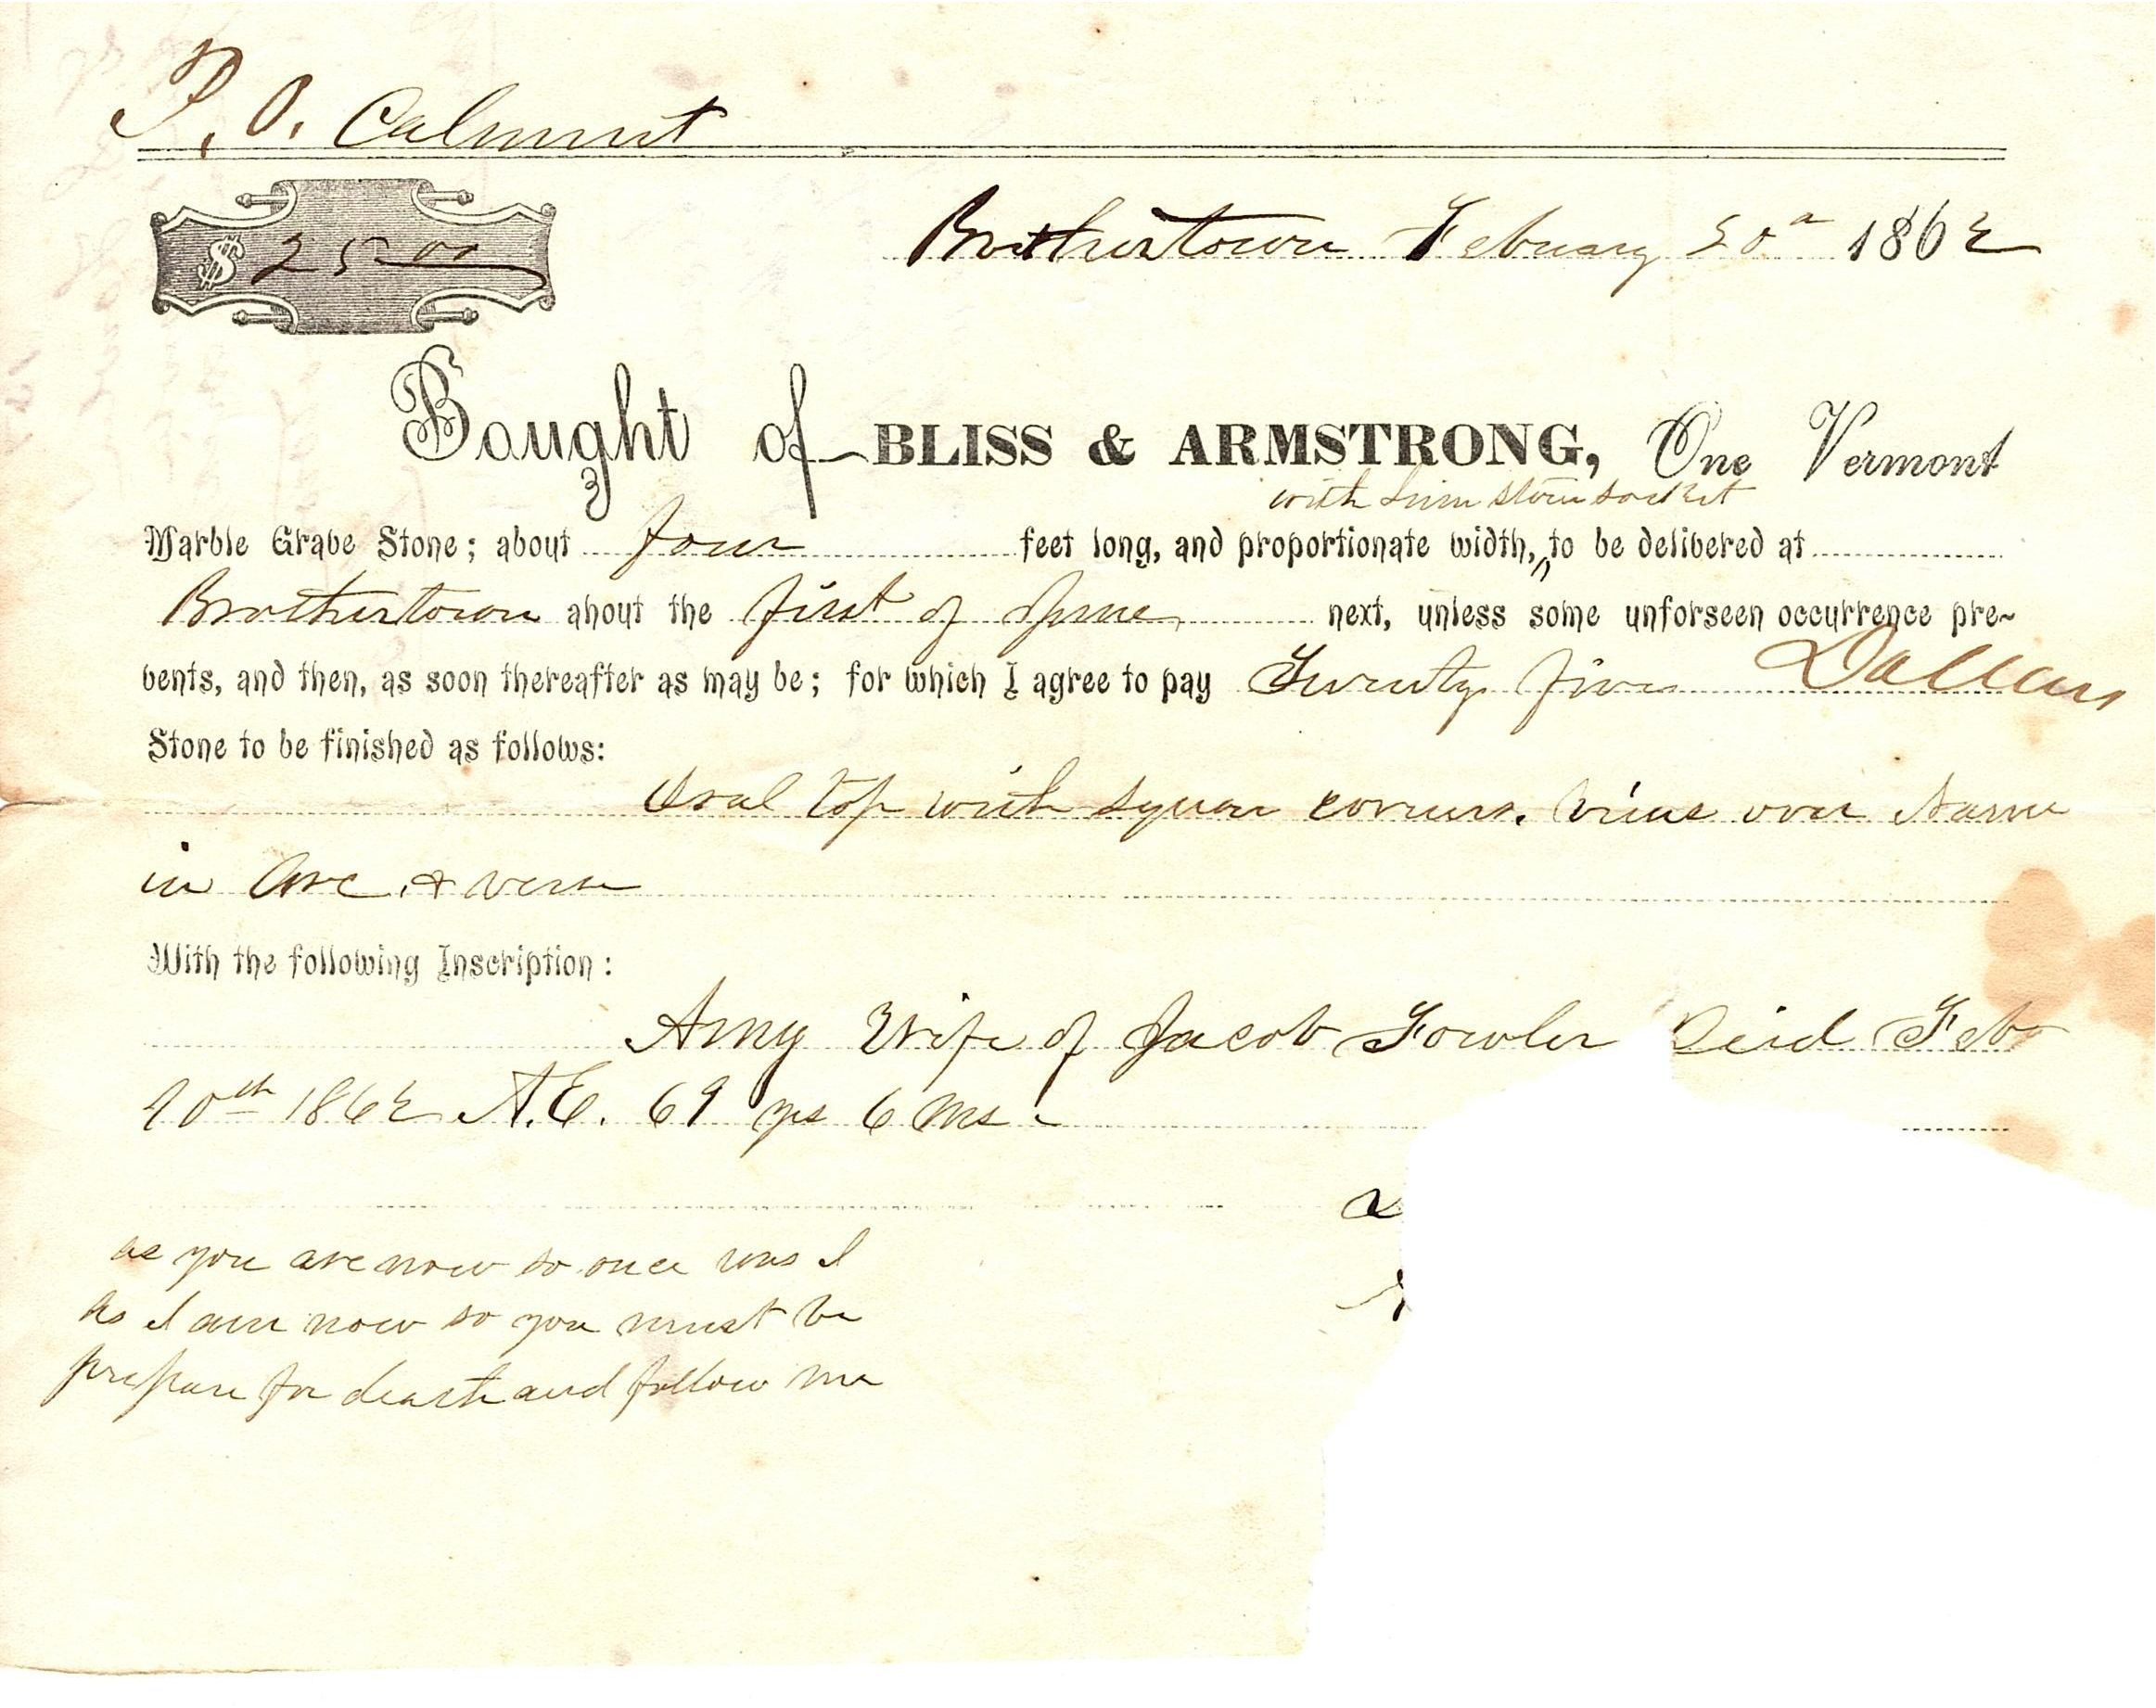 P. O. Calmut
$ 25.00
Brothertown Febuary 20 1862
Bought of BLISS & ARMSTRONG, One Vermont
with Lim stone socket
Marble Grave Stone; about four feet long, and proportionate width, ^ to be delivered at
Brothertown about the first of June next, unless some unforseen occurrence pre-
vents, and then, as soon thereafter as may be; for which I agree to pay Twenty five Dollars
Stone to be finished as follows:
Oval top with square corners. Vine over Name
in Arc. & verse
With the following Inscription:
Amy Wife of Jacob Fowler Deid Feb
10th 1862 A.E. 69 ys 6 ms.
as you are now so once was I
As I am now so you must be
prepare for death and follow me